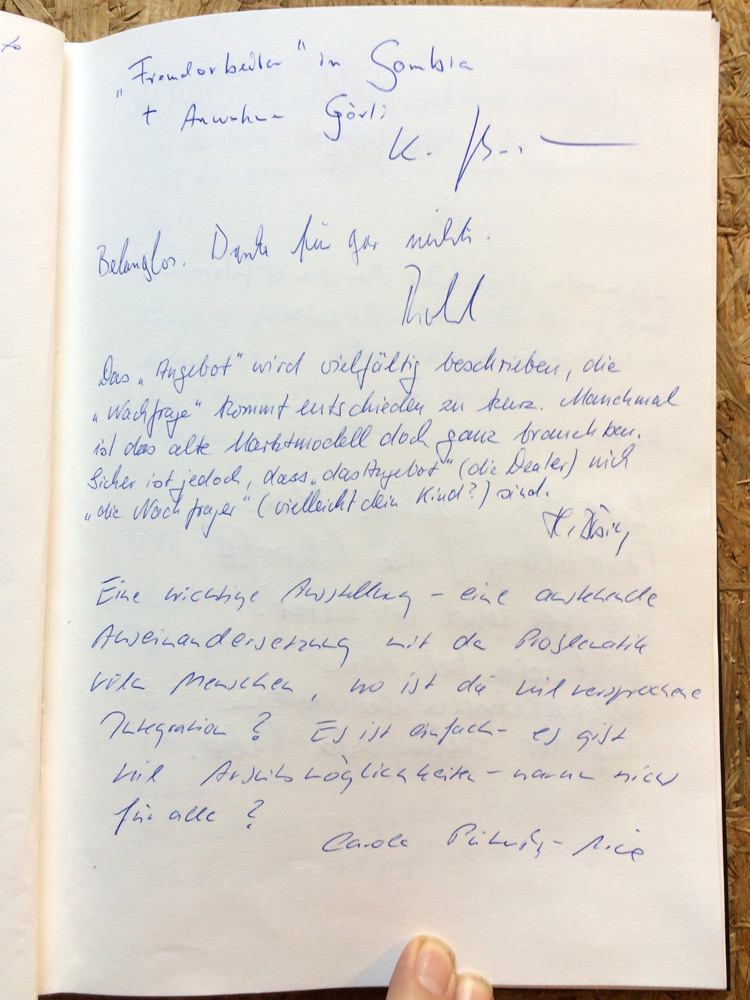 „Fremdarbeiter" in Gambia
+ Anwohner Görli
K.
Belanglos. Danke für gar nichts.
Das „Angebot" wird vielfältig beschrieben, die
„Nachfrage" kommt entschieden zu kurz. Manchmal
ist das alte Marktmodell doch ganz brauchbar.
Sicher ist jedoch, dass „das Angebot" (die Dealer) nich
„die Nachfrager" (vielleicht dein Kind?) sind.
Eine wichtige Ausstellung – eine anstehende
Auseinandersetzung mit der Problematik
vieler Menschen, wo ist die vielversprochene
Integration? Es ist einfach – es gibt
viel Arbeitsmöglichkeiten – warum nicht
für alle?
Carola